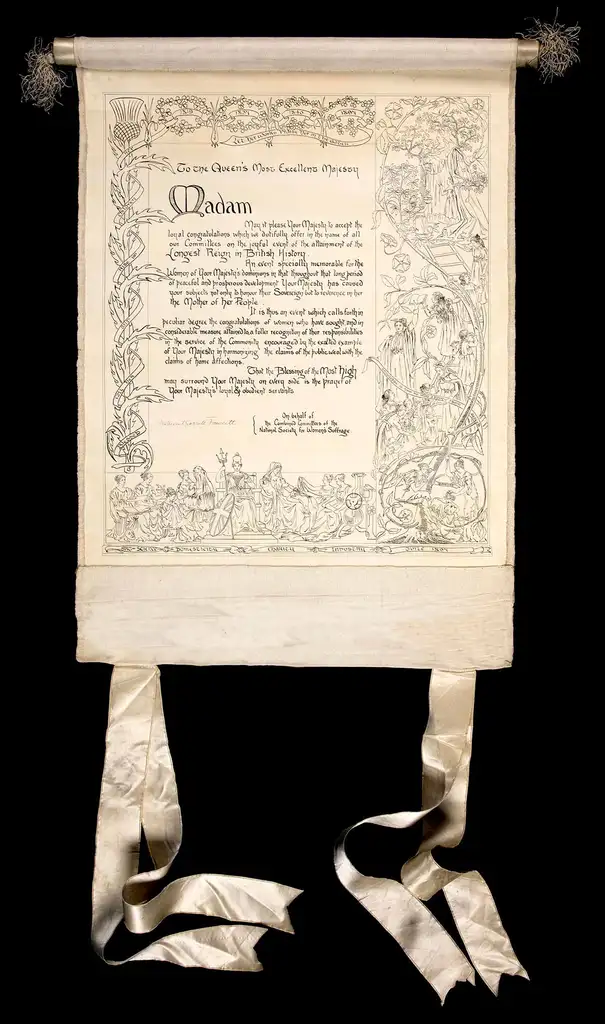 1819 1837 1840 1897
To the Queen's Most Excellent Majesty
Madam
May it please Your Majesty to accept the
loyal congratulations which we dutifully offer in the name of all
our Committees on the joyful event of the attainment of the
Longest Reign in British History.
An event specially memorable for the
Women of Your Majesty's dominions in that throughout that long period
of peaceful and prosperous development Your Majesty has caused
your subjects not only to honour their Sovereign but to reverence in her
the Mother of Her People.
It is thus an event which calls forth in
peculiar degree the congratulations of women who have sought and in
considerable measure attained to a fuller recognition of their responsibilities
in the service of the Community encouraged by the exalted example
of Your Majesty in harmonizing the claims of the public weal with the
claims of home affections.
That the Blessing of the Most High
may surround Your Majesty on every side is the prayer of
Your Majesty's loyal & obedient servants
On behalf of
the Combined Committees of the
National Society for Women's Suffrage
Millicent Garrett Fawcett
Charity Industry June 1897